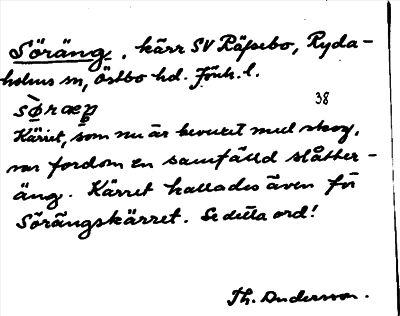 Söräng, kärr SV Räfsebo, Ryda-
holms sn, Östbo hd. Jönk. l.
sø̀ræŋ
38
Kärret, som nu är bevuxet med skog,
var fordom en samfälld slåtter-
äng. Kärret kallades även för
Sörängskärret. Se detta ord!
Th. Andersson.